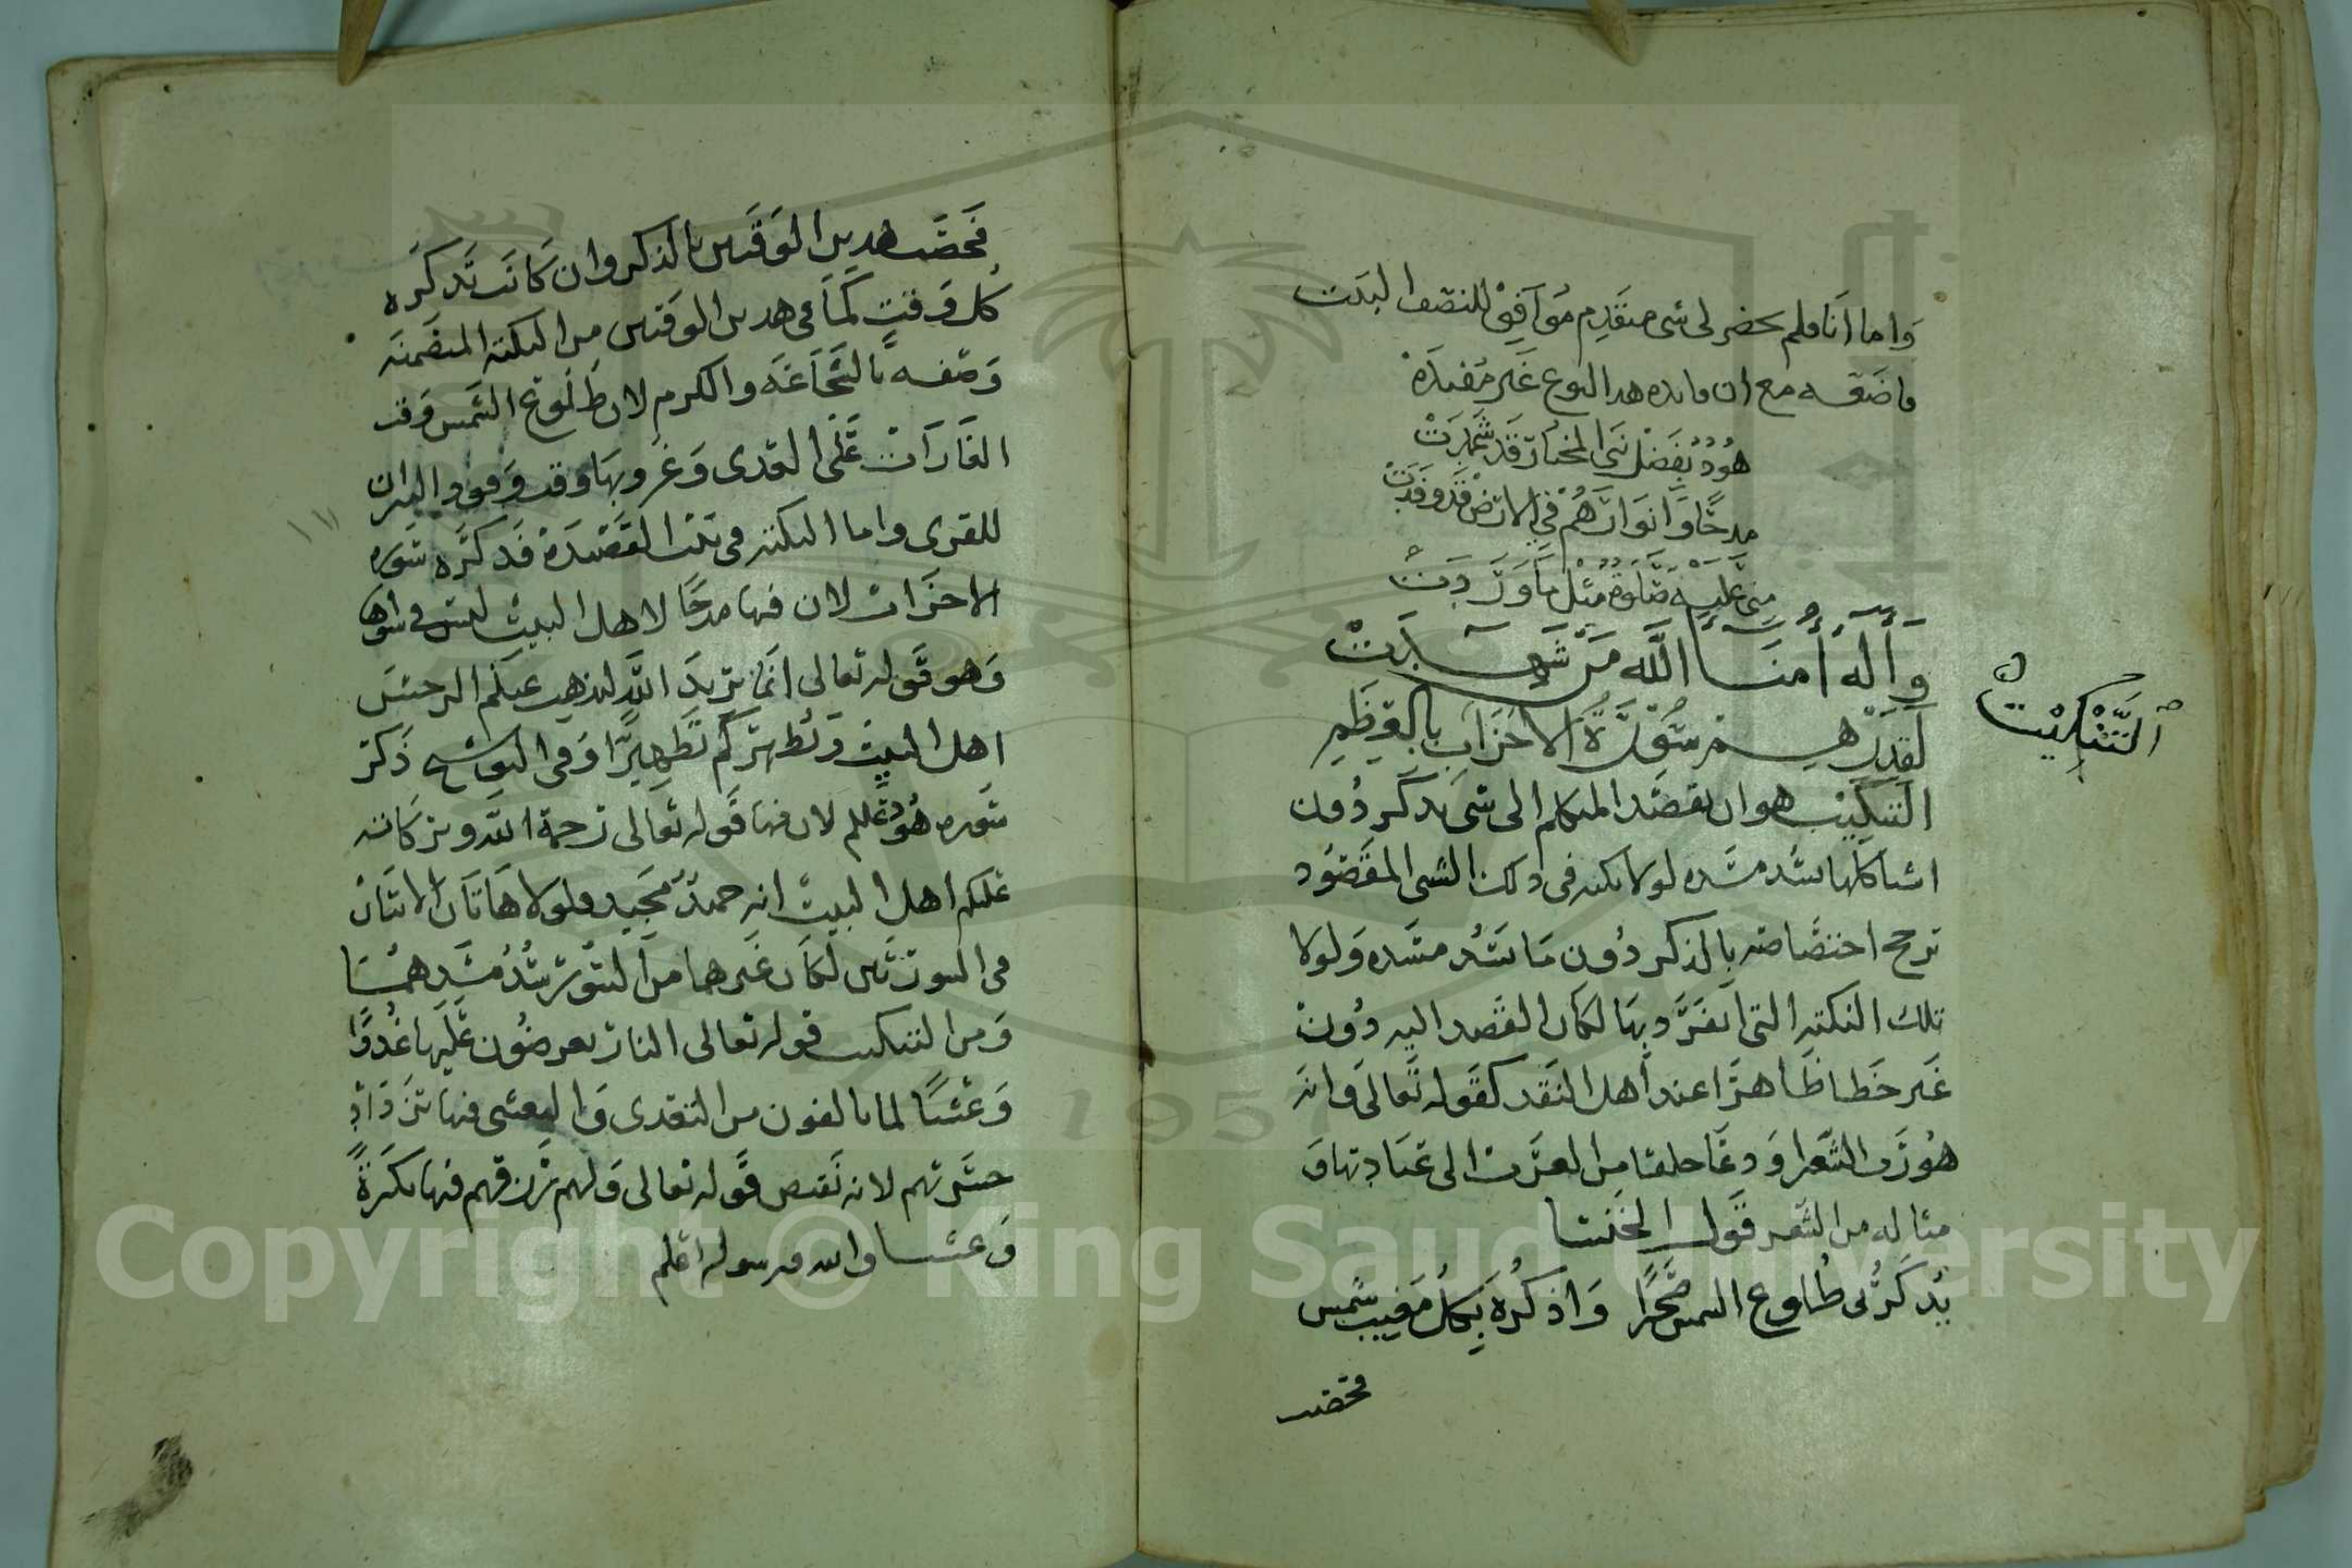 وَاما اَنَا فلم يحضر لى شى متقدم مُوَآفِق للنصف البَيت
فاضَفته مع ان فايده هدا النوع غَير مُفيدَة
هُودُ بفَضْل نَبى المختارَ قَد شَهِدَتْ
مدحًا وَاَنوَارهُم في الارض قَد وَقَدَتْ
مِنى عَلَيه صَلوة مثل مَا وَرَدَتْ
وَآلِه اُمَنَا الله مَن شَهِدَتْ
لقدرهم سُورَةُ الاحزَاب بالعِظَمِ
التَّنْكِيْتُ
التنكيت هو ان يقصَد المتكلم الى شى يذكر دُون
اشيا كلها تسُد مسَده لولا نكته فى دلك الشى المقصُود
ترجح اختصَاصه بالذكر دُون مَا يَسُد مسَده وَلولا
تلك النكته التى انفَرَد بهَا لكان القَصد اليه دُونْ
غَير خَطا ظَاهرًا عند أهل النَقد كقَوله تَعالى وَانه
هُو رَب الشعرا وَ دعَا خلقا من العَرَب الى عبَادتهَا وَ
مثاله من الشعر قَول الخَنسا
يُذكرُنى طُلوع الشمس صَخرًا وَاذكُرهُ بِكلُ مَغيب شمسِ
فخصت
فَخصَت هدين الوَقتين بالذكر وان كَانَت تَذكرَه
كُل وَقت لمَا فى هدين الوَقتين من النكته المتضمنه
وَصفه بالشَجَاعَه والكرم لان طُلُوع الشمس وَقت
الغَارَاتْ عَلى العدى وَغرُوبهَا وَقت وَقود النيران
للقرى واما النكته فى بيت القَصيدَة فَذكرَه سُورَه
الاحزَاب لان فيها مدحًا لاهل البيت ليسَ فى سواها
وَهو قَوله تعالى انَمَا يريدَ الله ليذهب عنكم الرجسَ
اهل البيتْ وَيُطهرَكم تَطهيرًا وَفى التوشيع ذَكر
سُوره هُود عَليم لان فيها قَوله تعَالى رَحمة الله وبركَاته
عَليكم اهل البيت انه حميدٌ مجَيد فلولا هَاتَان الايتَان
فى السورتَين لكَان غَيرهما من السُور يَسُدُ مسَدهمَا
وَمن التنكيت قوله تعالى النار يعرضُون عَليها غُدوًا
وَعَشيًا لما يالفون من التغدى وَالتعشى فيها تزدَادُ
حسَرتهم لانه نَقيض قَوله تعَالى وَلهم رزقهم فيهَا بكرَةً
وَعشيا والله ورسوله اعلم
Copyright © King Saud University
1957